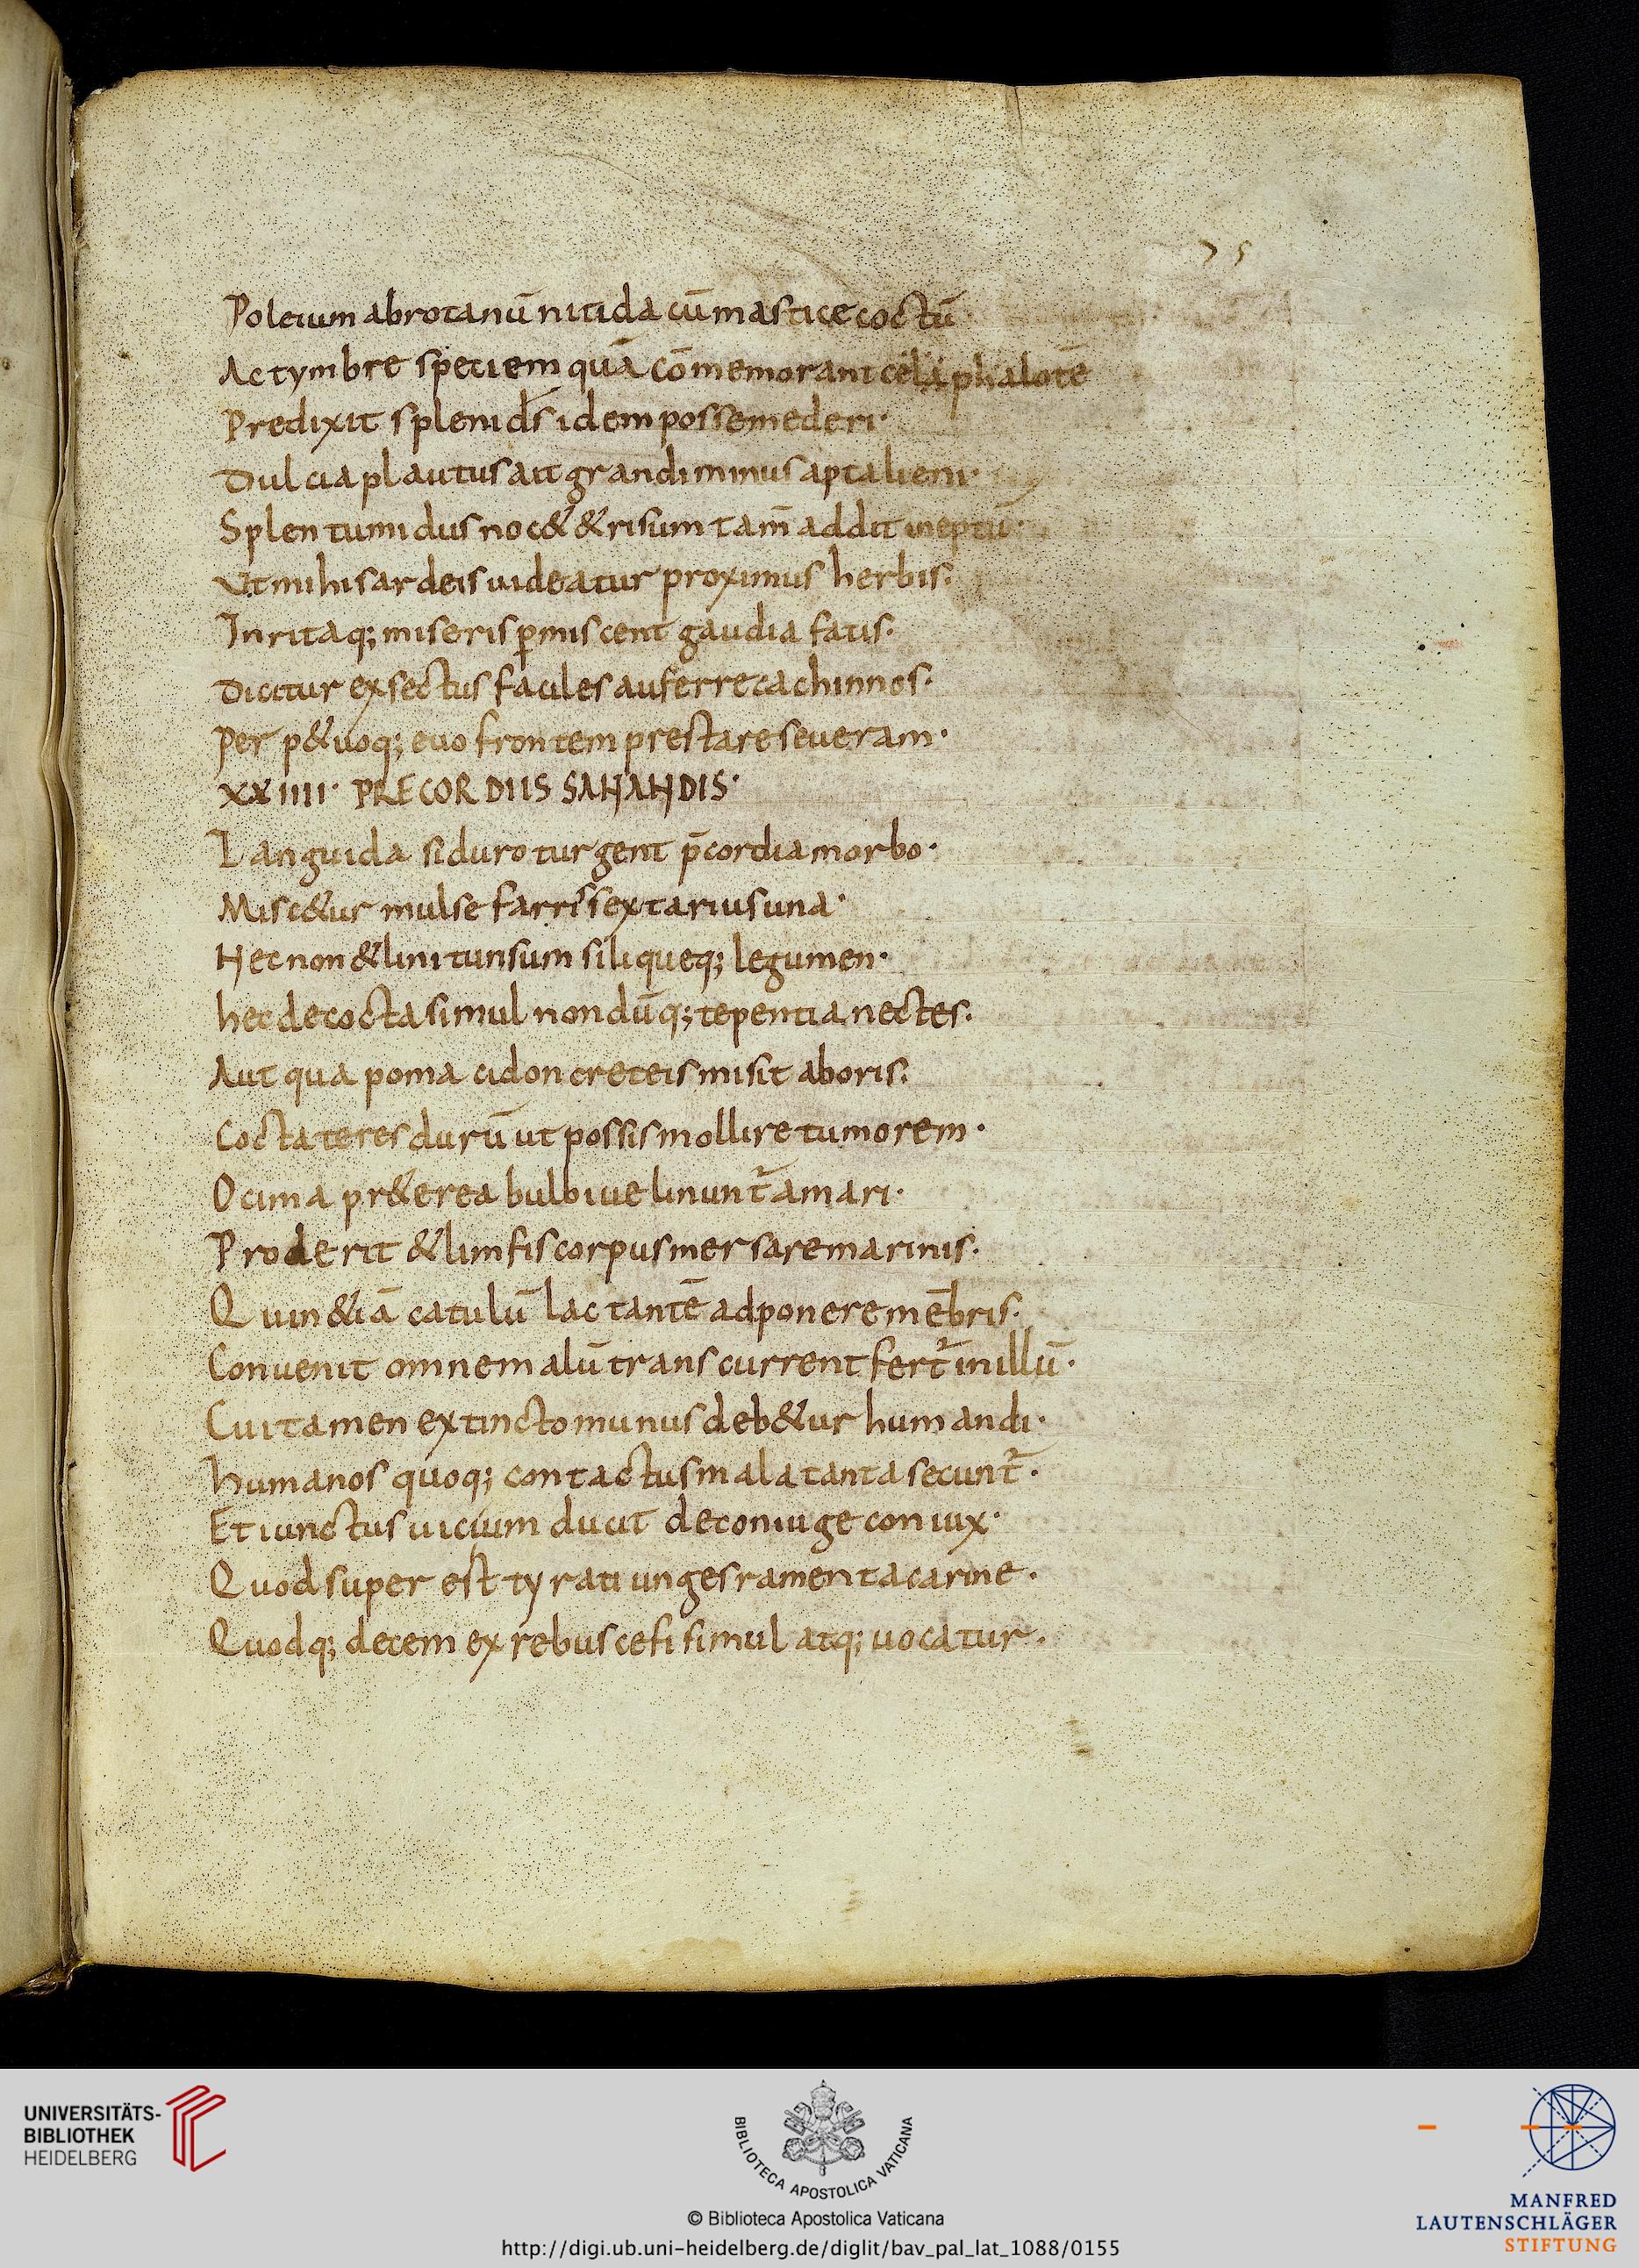 75
Poleium abrotanū nitida cū mastice coctū
Ac tymbre speciem quā cōmemorant cela phalotē
Predixit spleni ds idem posse mederi·
Dulcia plautus ait grandi minus apta lieni·
Splen tumidus noc& & risum tam̄ addit ineptū·
Ut mihi sardeis uideatur proximus herbis.
Inritaq; miseris ꝑmiscent gaudia fatis·
Dicitur exsectus faciles auferre cachinnos·
Per p&uoq; euo frontem prestare seueram·
XXIIII· PRECORDIIS SANANDIS·
Languida si duro turgent p̄cordia morbo·
Misc&ur mulse farris sextarius una·
Nec non & lini tunsum siliqueq; legumen·
hec decocta simul nondūq; tepentia nectes·
Aut qua poma cidon creteis misit aboris·
Cocta teres durū ut possis mollire tumorem·
Ocima pr&erea bulbiue linunt̄ amari·
Proderit & limfis corpus mersare marinis·
Quin &iā catulū lactantē adponere mēbris·
Convenit omne malū transcurrent fert̄ in illū·
Cui tamen extincto munus deb&ur humandi·
Humanos quoq; contactus mala tanta secunt̄·
Et iunctus uicium ducit de coniuge coniux·
Quod super est tyrati unges ramenta carine·
Quodq; decem ex rebus cefi simul atq; uocatur·
UNIVERSITÄTS-
BIBLIOTHEK
HEIDELBERG
BIBLIOTECA APOSTOLICA VATICANA
© Biblioteca Apostolica Vaticana
http://digi.ub.uni-heidelberg.de/diglit/bav_pal_lat_1088/0155
MANFRED
LAUTENSCHLÄGER
STIFTUNG